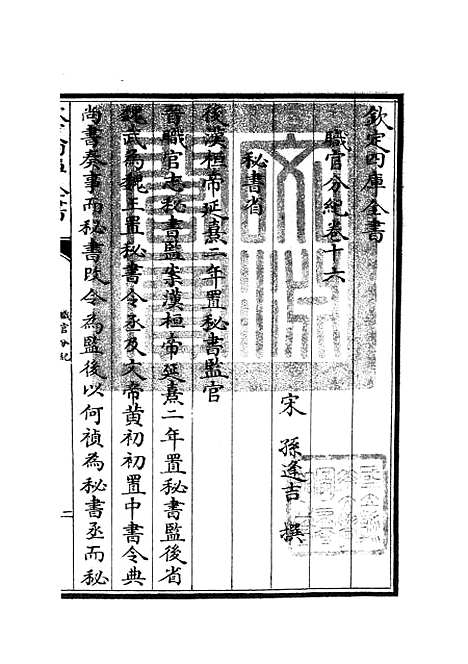 欽定四庫全書
職官分紀卷十六
宋 孫逢吉 撰
秘書省
後漢桓帝延熹二年置秘書監官
晉職官志秘書監案漢桓帝延熹二年置秘書監後省
魏武為魏王置秘書令丞及文帝黃初初置中書令典
尚書奏事而秘書改令為監後以何禎為秘書丞而秘
職官分紀
二